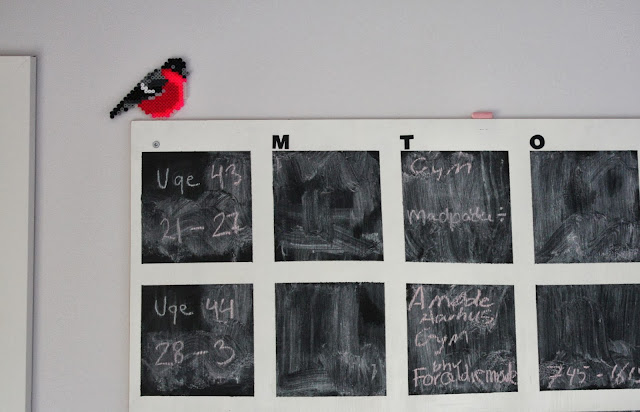 M T O
Uge 43
21-27
Gym
madpakke
Uge 44
28-3
A møde
Aarhus
Gym
Forældremøde
745-